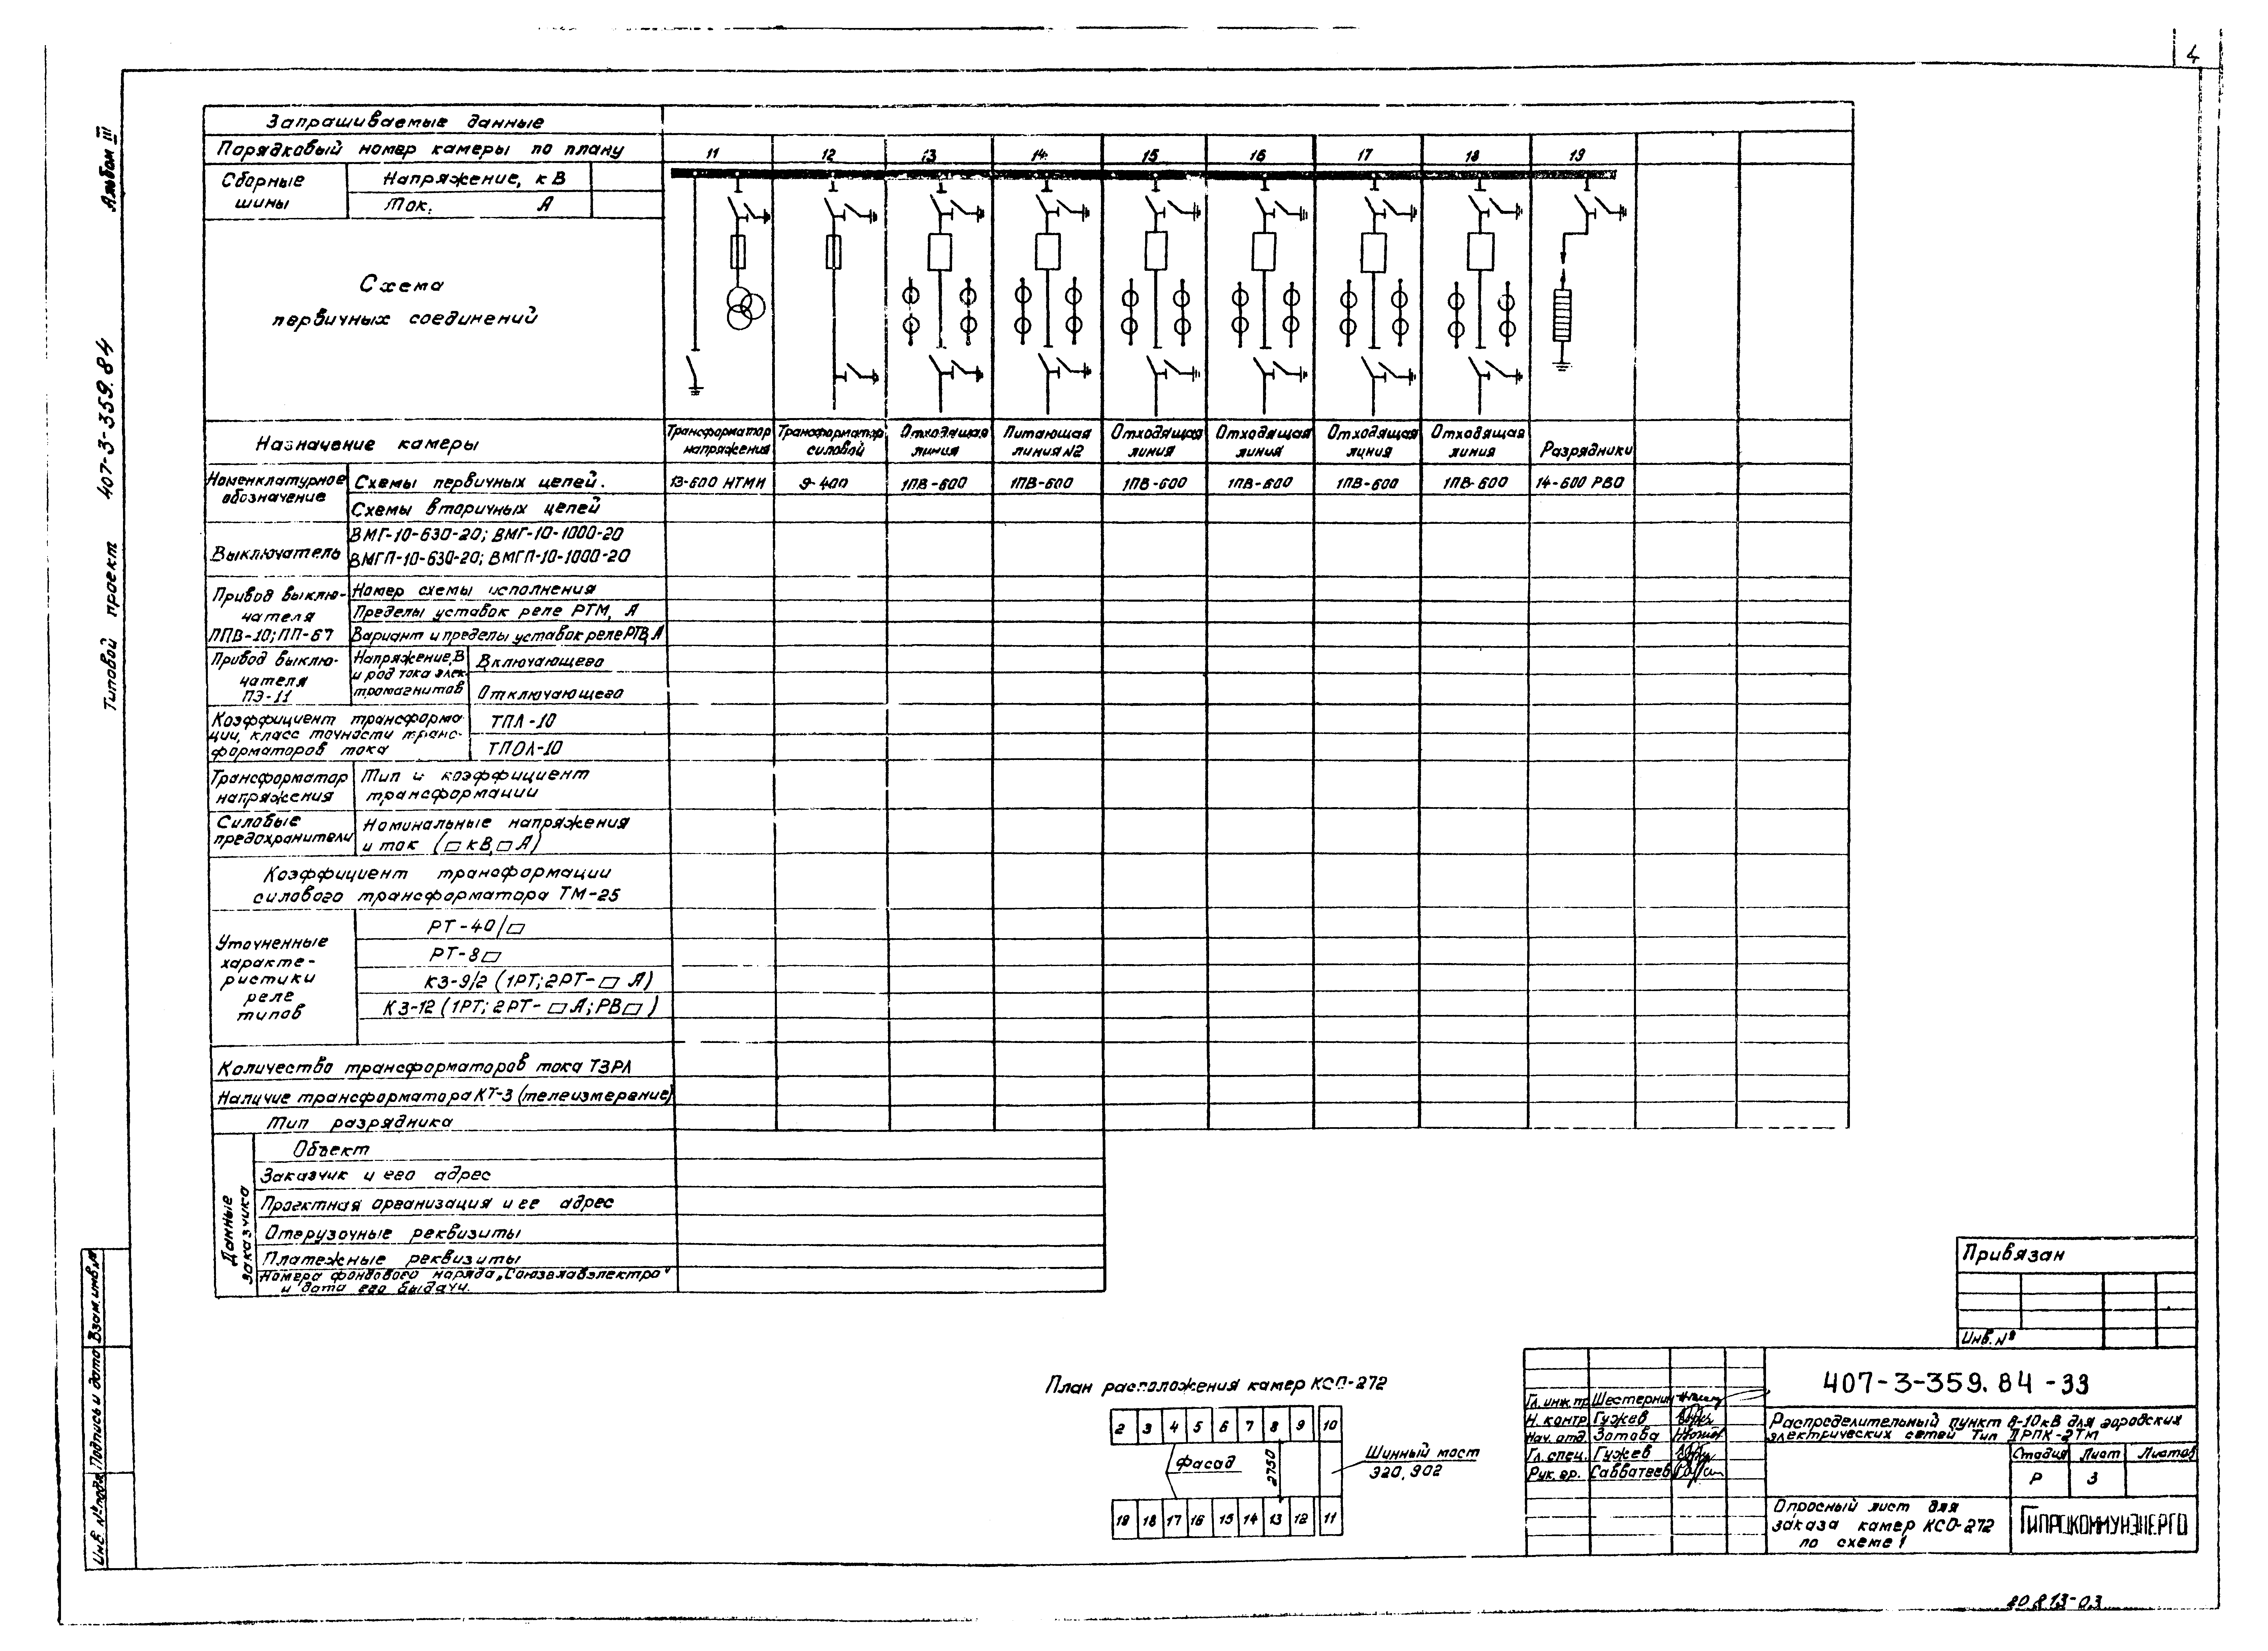 4
Альбом III
Типовой проект 407-3-359.84
Запрашиваемые данные
Порядковый номер камеры по плану 11 12 13 14 15 16 17 18 19
Сборные шины
Напряжение, кВ
Ток, А
Схема
первичных соединений
Назначение камеры
Трансформатор напряжения
Трансформатор силовой
Отходящая линия
Питающая линия N2
Отходящая линия
Отходящая линия
Отходящая линия
Отходящая линия
Разрядники
Номенклатурное обозначение
Схемы первичных цепей. 13-600 НТМИ 9-400 1ПВ-600 1ПВ-600 1ПВ-600 1ПВ-600 1ПВ-600 1ПВ-600 14-600 РВО
Схемы вторичных цепей
Выключатель
ВМГ-10-630-20; ВМГ-10-1000-20
ВМГП-10-630-20; ВМГП-10-1000-20
Привод выклю-
чателя
ППВ-10; ПП-67
Номер схемы исполнения
Пределы уставок реле РТМ, А
Вариант и пределы уставок реле РТВ, А
Привод выклю-
чателя
ПЭ-11
Напряжение, В
и род тока элек-
тромагнитов
Включающего
Отключающего
Коэффициент трансформа
ции, класс точности транс-
форматоров тока
ТПЛ-10
ТПОЛ-10
Трансформатор
напряжения
Тип и коэффициент
трансформации
Силовые
предохранители
Номинальные напряжения
и ток (□ кВ, □ А)
Коэффициент трансформации
силового трансформатора ТМ-25
Уточненные
характе-
ристики
реле
типов
РТ-40/□
РТ-8□
КЗ-9/2 (1РТ; 2РТ-□ А)
КЗ-12 (1РТ; 2РТ-□ А; РВ□)
Количество трансформаторов тока ТЗРЛ
Наличие трансформатора КТ-3 (телеизмерение)
Тип разрядника
Данные
заказчика
Объект
Заказчик и его адрес
Проектная организация и ее адрес
Отгрузочные реквизиты
Платежные реквизиты
Номера фондового наряда „Союзглавэлектро"
и дата его выдачи.
План расположения камер КСО-272
2 3 4 5 6 7 8 9 10
Фасад
2750
Шинный мост
320, 902
19 18 17 16 15 14 13 12 11
Привязан
Инв. №
407-3-359.84-ЭЭ
Гл. инж. пр. Шестернин
Н. контр. Гужев
Нач. отд. Зотова
Гл. спец. Гужев
Рук. гр. Савватеев
Распределительный пункт 6-10кВ для городских
электрических сетей Тип ДРПК-2ТМ
Стадия Лист Листов
Р 3
Опросный лист для
заказа камер КСО-272
по схеме 1
ГИПРОКОММУНЭНЕРГО
Инв. № подл. Подпись и дата Взам. инв. №
20813-03